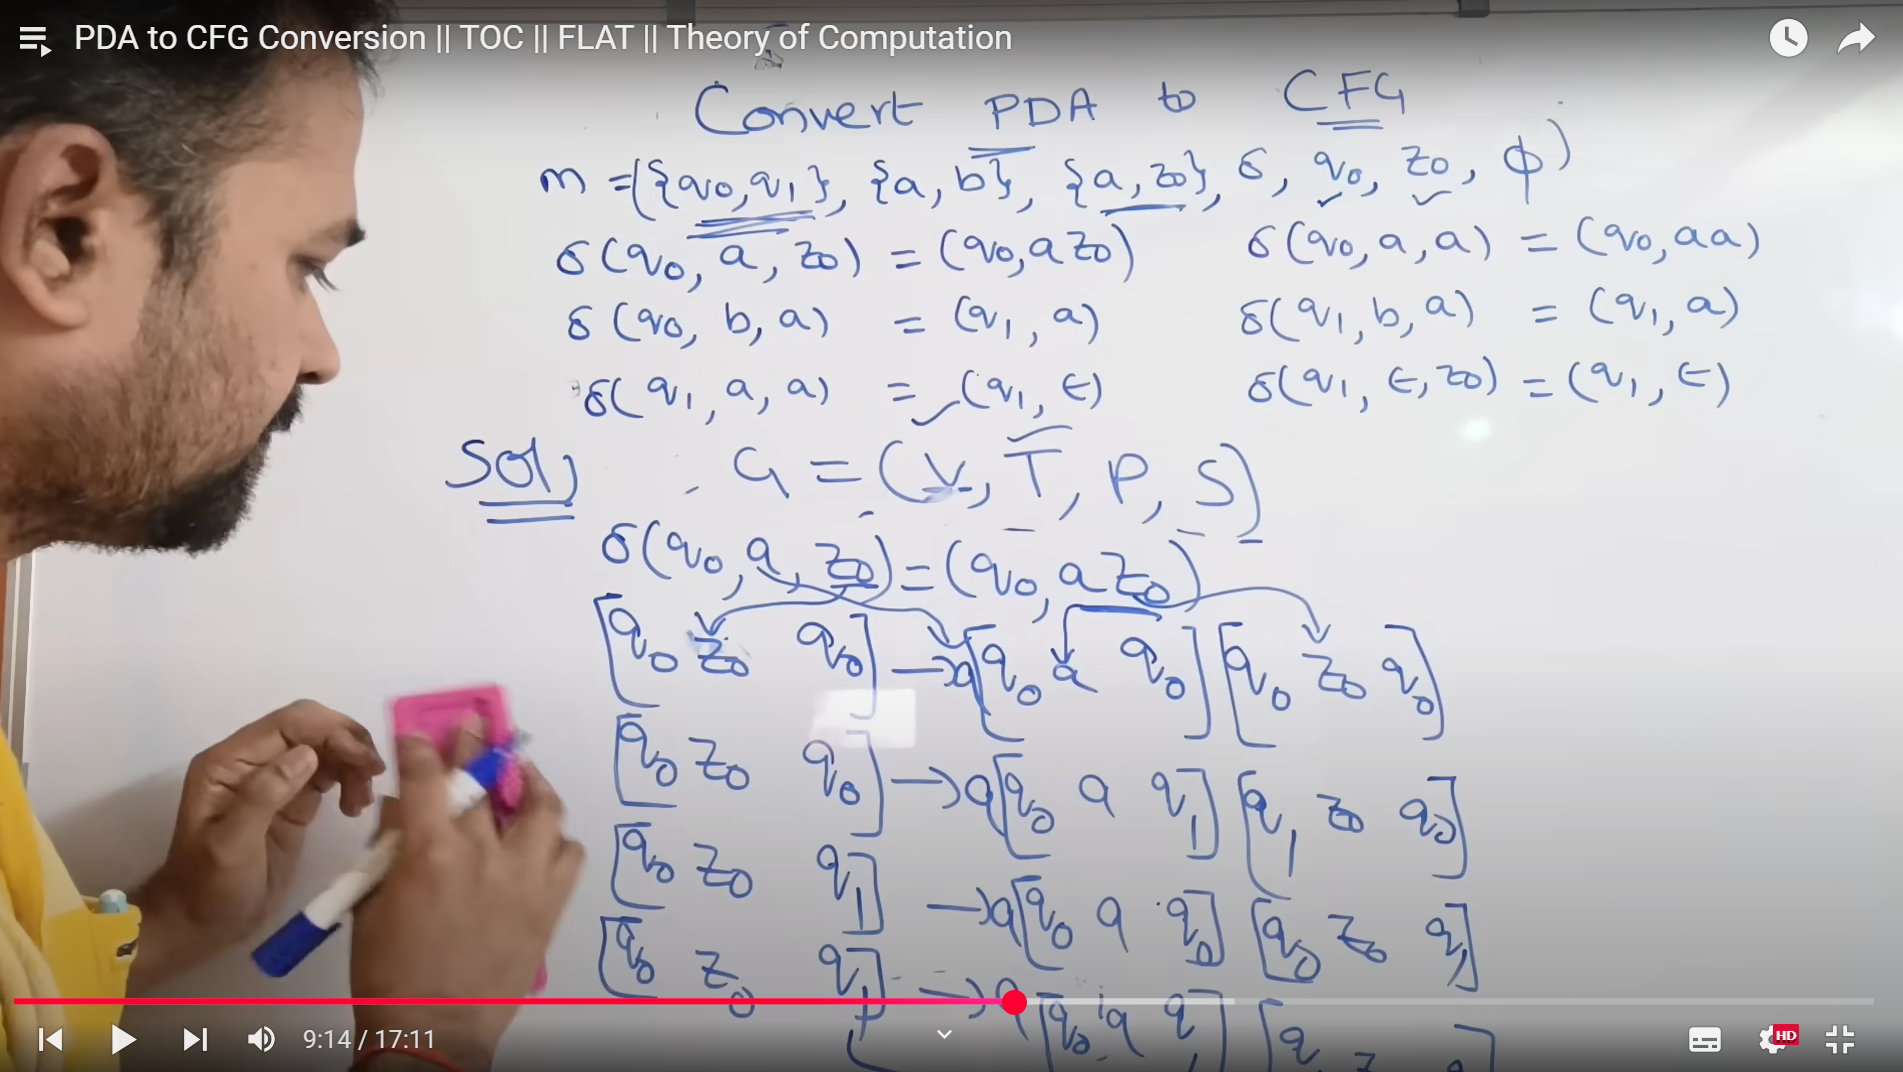 PDA to CFG Conversion || TOC || FLAT || Theory of Computation
Convert PDA to CFG
m = ({q0, q1}, {a, b}, {a, z0}, δ, q0, z0, ϕ)
δ(q0, a, z0) = (q0, az0) δ(q0, a, a) = (q0, aa)
δ(q0, b, a) = (q1, a) δ(q1, b, a) = (q1, a)
δ(q1, a, a) = (q1, ε) δ(q1, ε, z0) = (q1, ε)
Sol) G = (V, T, P, S)
δ(q0, a, z0) = (q0, az0)
[q0 z0 q0] → a[q0 a q0] [q0 z0 q0]
[q0 z0 q0] → a[q0 a q1] [q1 z0 q0]
[q0 z0 q1] → a[q0 a q0] [q0 z0 q1]
[q0 z0 q1] → a[q0 a q1] [q z q]
9:14 / 17:11
HD